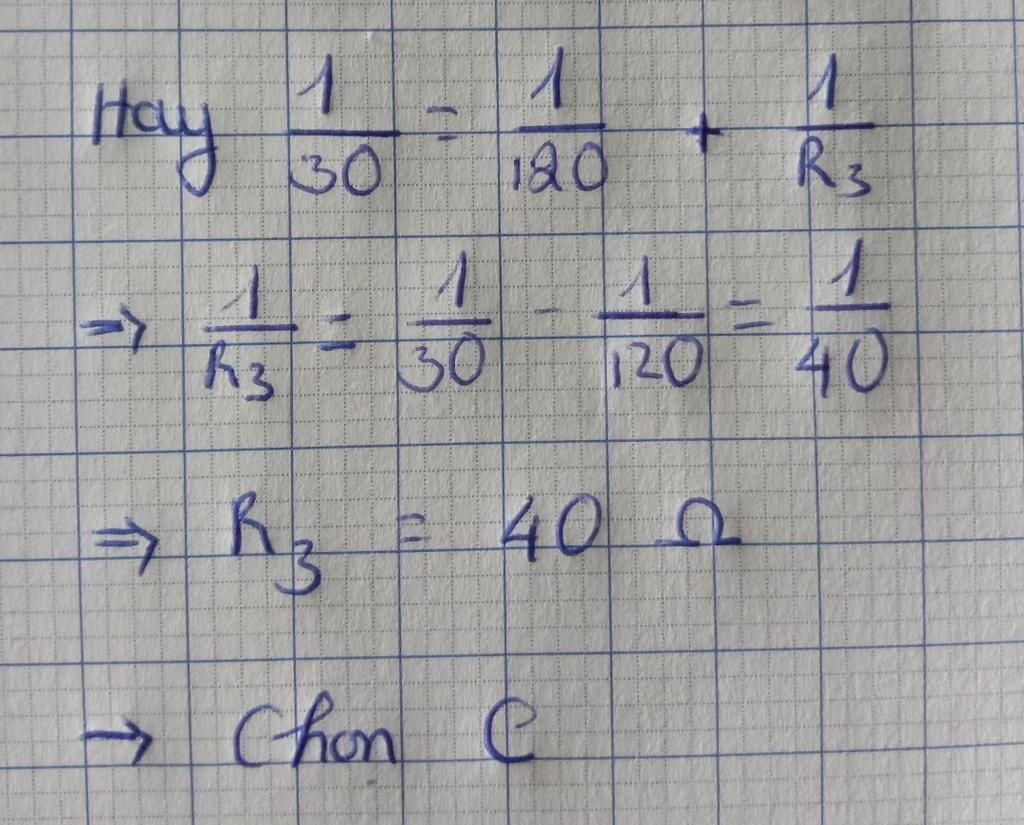 Hay 1/30 = 1/120 + 1/R₃
⇒ 1/R₃ = 1/30 - 1/120 = 1/40
⇒ R₃ = 40 Ω
→ Chon C